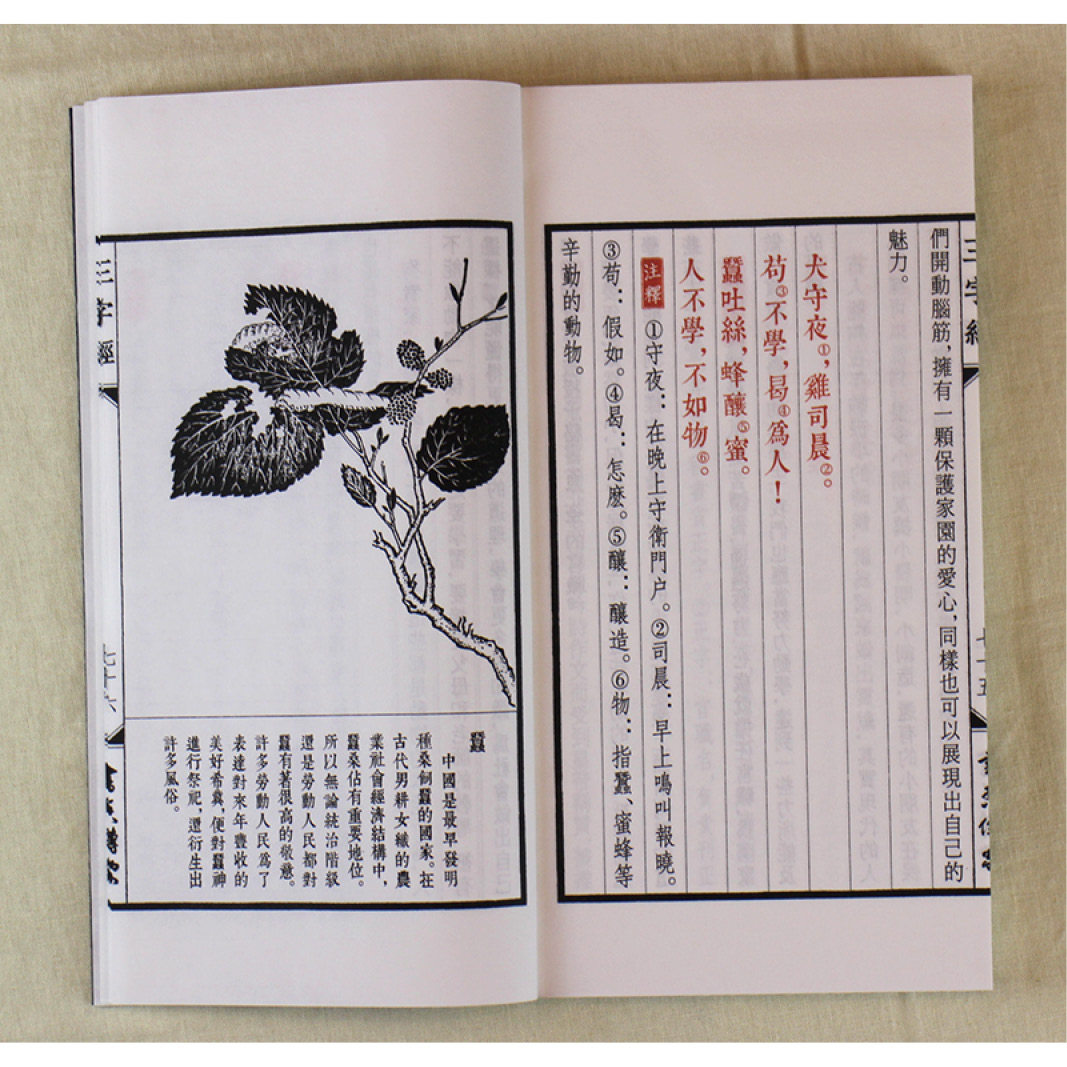 三字經
七十五
們開動腦筋，擁有一顆保護家園的愛心，同樣也可以展現出自己的
魅力。
犬守夜①，雞司晨②。
苟③不學，曷④爲人！
蠶吐絲，蜂釀⑤蜜。
人不學，不如物⑥。
注釋 ①守夜：在晚上守衛門户。②司晨：早上鳴叫報曉。
③苟：假如。④曷：怎麽。⑤釀：釀造。⑥物：指蠶、蜜蜂等
辛勤的動物。
蠶
中國是最早發明
種桑飼蠶的國家。在
古代男耕女織的農
業社會經濟結構中，
蠶桑佔有重要地位。
所以無論統治階級
還是勞動人民都對
蠶有著很高的敬意。
許多勞動人民爲了
表達對來年豐收的
美好希冀，便對蠶神
進行祭祀，還衍生出
許多風俗。
三字經
七十六